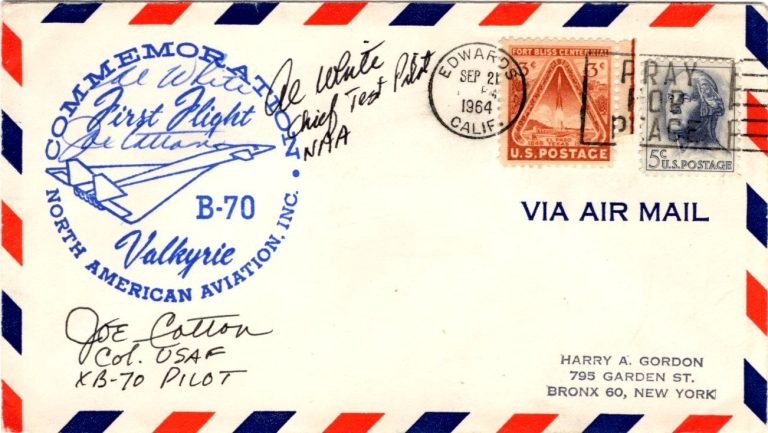 COMMEMORATION
Joe Cotton
First Flight
B-70
Valkyrie
NORTH AMERICAN AVIATION, INC.
Al White
Chief Test Pilot
NAA
EDWARDS
SEP 21
1964
CALIF.
FORT BLISS CENTENNIAL
3¢ 3¢
U.S. POSTAGE
PRAY
FOR
PEACE
5¢ U.S. POSTAGE
VIA AIR MAIL
Joe Cotton
Col. USAF
XB-70 PILOT
HARRY A. GORDON
795 GARDEN ST.
BRONX 60, NEW YORK